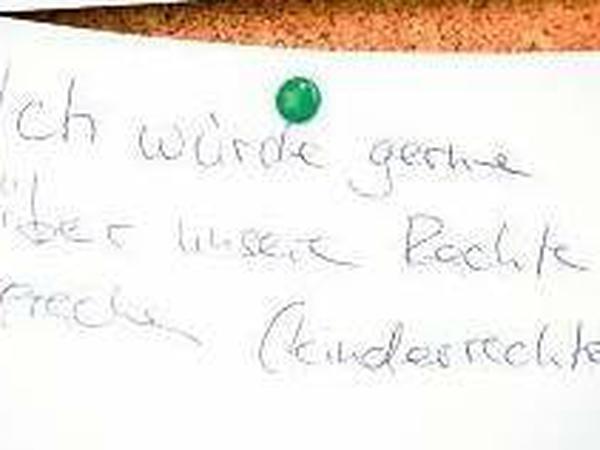 Ich würde gerne
über unsere Rechte
sprechen (Kinderrechte